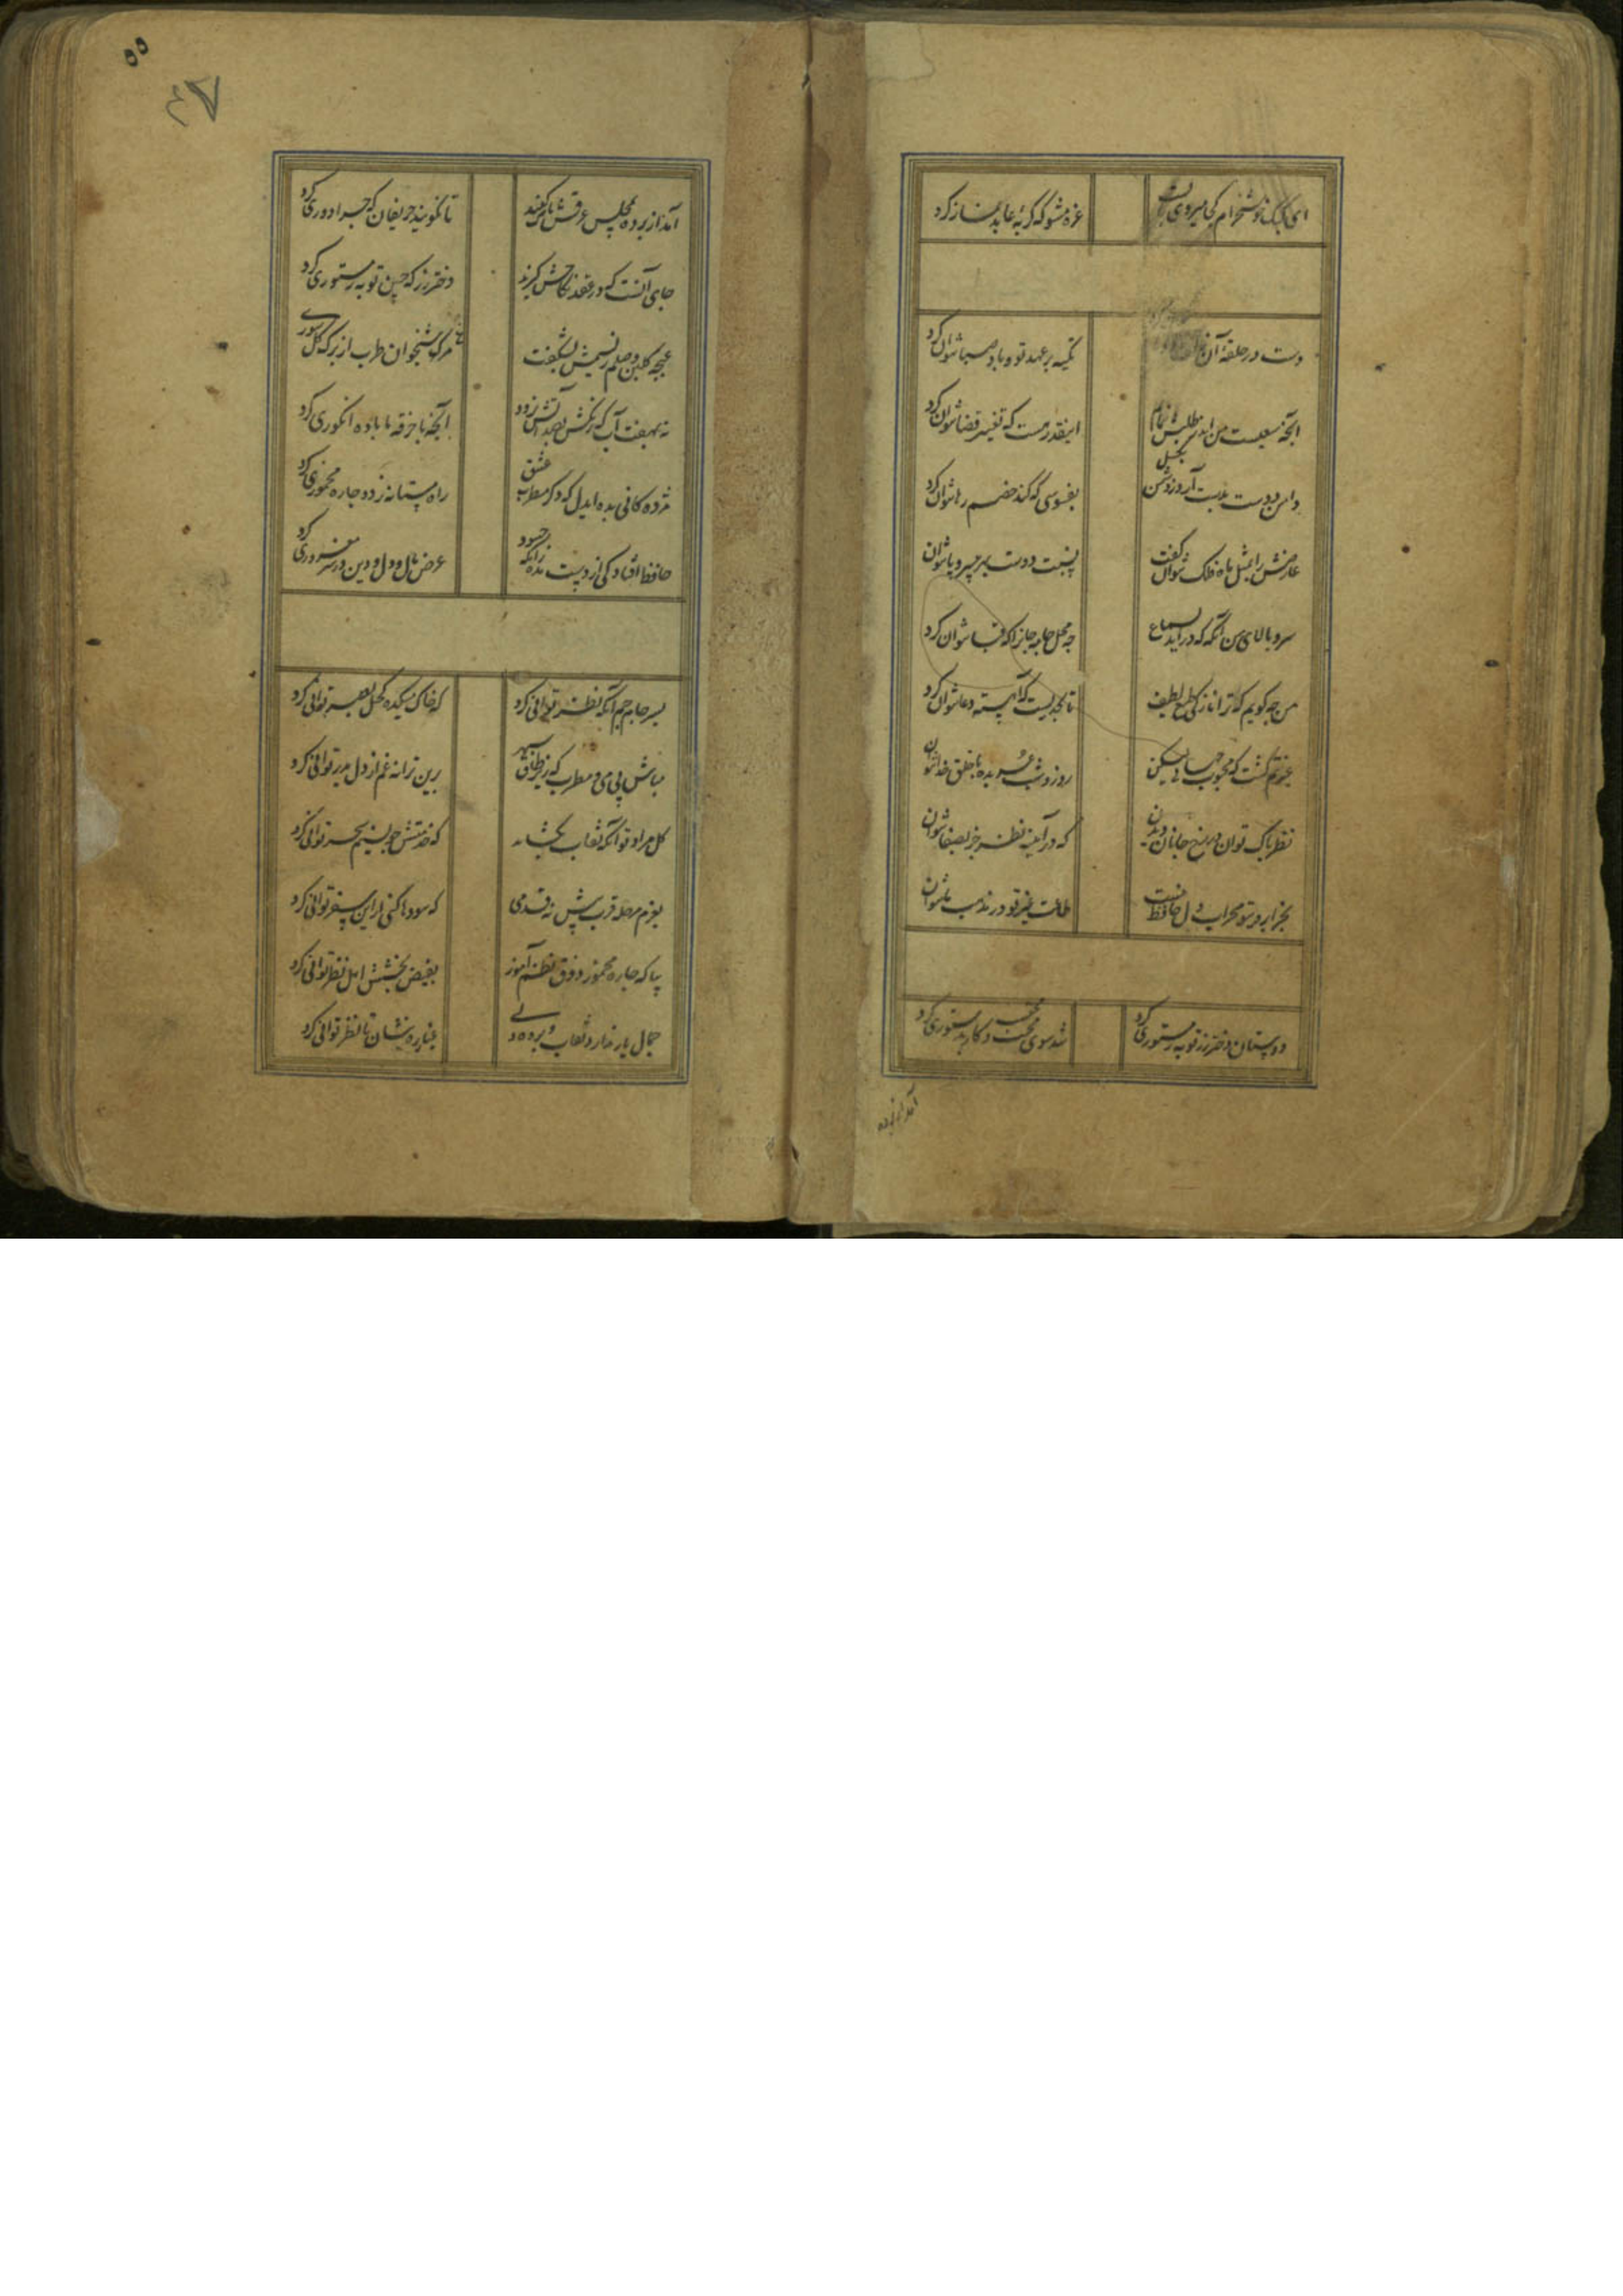 ای کبک خوشخرام کجا میروی بایست غره مشو که گربهٔ عابد نماز کرد
دست در حلقهٔ آن تکیه بر عهد تو و باد صبا نتوان کرد
آنچه سعیست من اندر طلبش بنمایم اینقدر هست که تغییر قضا نتوان کرد
دامن دوست بدست آر و ز دشمن بگسل بفسوسی که کند خصم رها نتوان کرد
عارضش را بمثل ماه فلک نتوان گفت نسبت دوست بهر بی سر و پا نتوان
سرو بالای من آنگه که در آید بسماع چه محل جامه جانرا که قبا نتوان کرد
من چه گویم که ترا نازکی طبع لطیف تا بحدیست که آهسته دعا نتوان کرد
غیرتم کشت که محبوب جهانی لیکن روز و شب عربده با خلق خدا نتوان
نظر پاک توان در رخ جانان دیدن که در آیینه نظر جز بصفا نتوان
بجز ابروی تو محراب دل حافظ نیست طاعت غیر تو در مذهب ما نتوان
دوستان دختر رز توبه ز مستوری کرد شد سوی محتسب و کار بدستوری کرد
آمد از پرده
۵۵
۴۷
آمد از پرده بمجلس عرقش پاک کنید تا نگویند حریفان که چرا دوری کرد
جای آنست که در عقد نکاحش گیرند دختر رز که چنین توبه ز مستوری کرد
غنچه گلبن وصلم ز نسیمش بشکفت مرغ شبخوان طرب از برگ گل سوری
نه بهفت آب که رنگش بصد آتش نرود آنچه با خرقه ما باده انگوری کرد
مژدگانی بده ایدل که دگر مطرب عشق راه مستانه زد و چاره مخموری کرد
حافظ افتادگی از دست مده زانکه حسود عرض و مال و دل و دین در سر مغروری کرد
بسر جام جم آنگه نظر توانی کرد که خاک میکده کحل بصر توانی کرد
مباش بی می و مطرب که زیر طاق سپهر بدین ترانه غم از دل بدر توانی کرد
گل مراد تو آنگه نقاب بگشاید که خدمتش چو نسیم سحر توانی کرد
بعزم مرحله قرب پیش نه قدمی که سودها کنی ار این سفر توانی کرد
بیا که چاره ذوق نظم آموز بفیض بخشش اهل نظر توانی کرد
جمال یار ندارد نقاب و پرده ولی غبار ره بنشان تا نظر توانی کرد